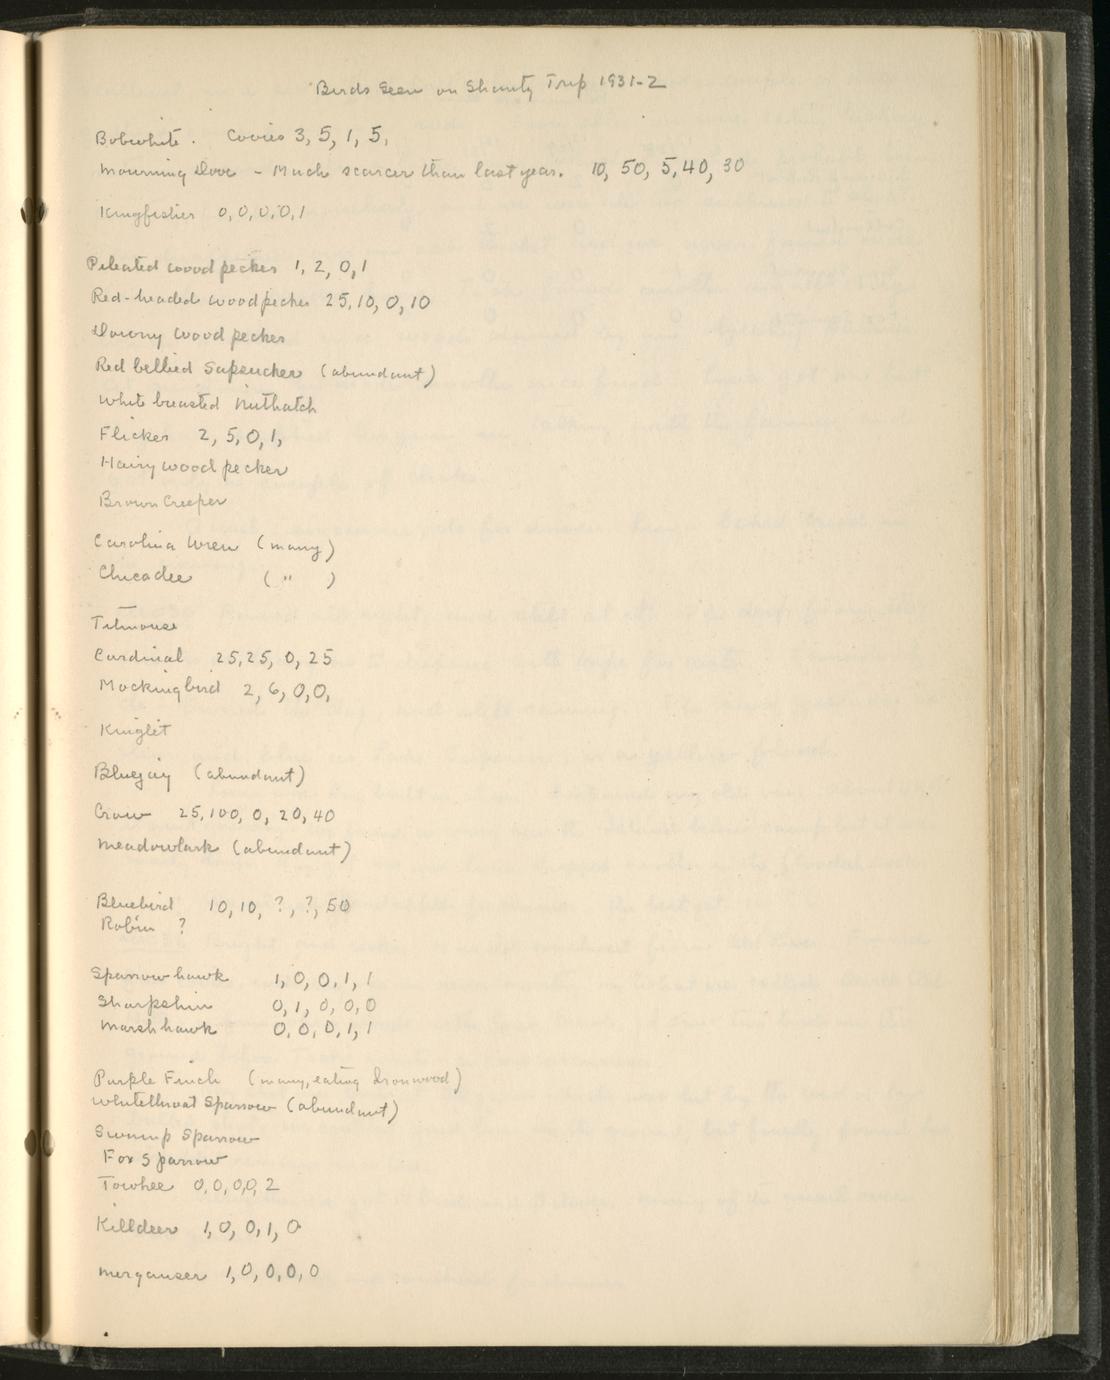 Birds Seen on Shanty Trip 1931-2
Bobwhite. Covies 3, 5, 1, 5,
Mourning Dove - Much scarcer than last year. 10, 50, 5, 40, 30
Kingfisher 0, 0, 0, 0, 1
Pileated woodpecker 1, 2, 0, 1
Red-headed woodpecker 25, 10, 0, 10
Downy woodpecker
Red bellied Sapsucker (abundant)
White breasted Nuthatch
Flicker 2, 5, 0, 1,
Hairy woodpecker
Brown Creeper
Carolina Wren (many)
Chicadee ( " )
Titmouse
Cardinal 25, 25, 0, 25
Mockingbird 2, 6, 0, 0,
Kinglet
Bluejay (abundant)
Crow 25, 100, 0, 20, 40
Meadowlark (abundant)
Bluebird 10, 10, ?, ?, 50
Robin ?
Sparrow hawk 1, 0, 0, 1, 1
Sharpshin 0, 1, 0, 0, 0
Marsh hawk 0, 0, 0, 1, 1
Purple Finch (many, eating Ironwood)
Whitethroat Sparrow (abundant)
Swamp Sparrow
Fox Sparrow
Towhee 0, 0, 0, 0, 2
Killdeer 1, 0, 0, 1, 0
Merganser 1, 0, 0, 0, 0